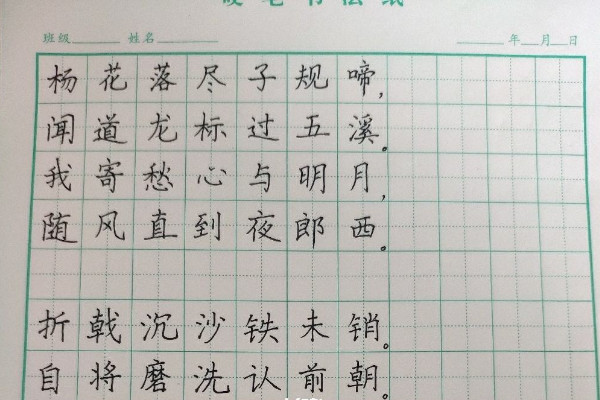 硬笔书法纸
班级______ 姓名______ ______年___月___日
杨花落尽子规啼,
闻道龙标过五溪。
我寄愁心与明月,
随风直到夜郎西。
折戟沉沙铁未销。
自将磨洗认前朝。